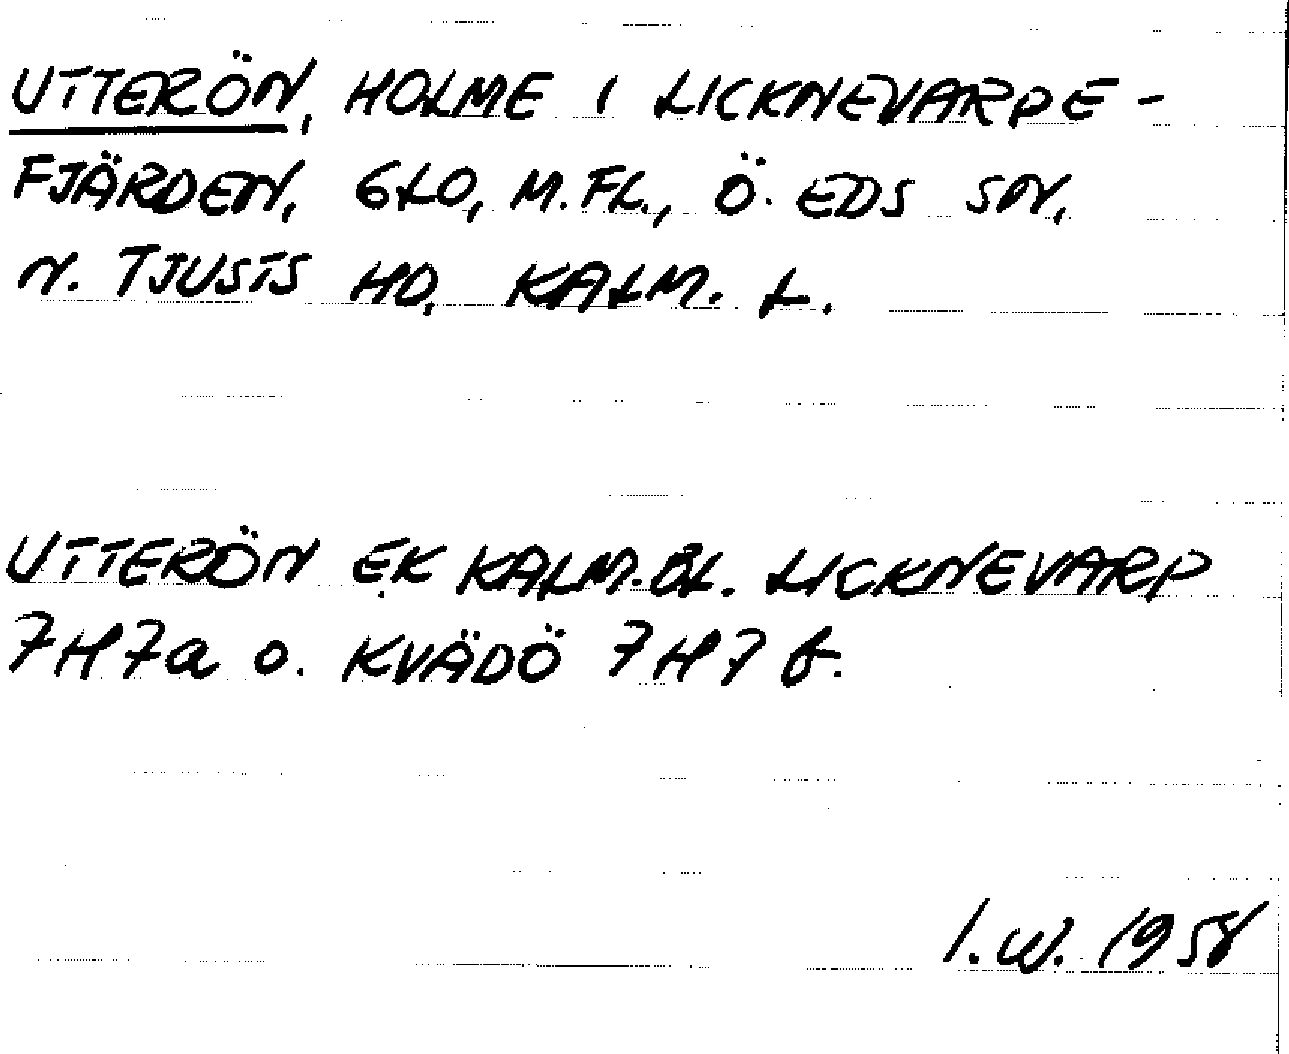 UTTERÖN, HOLME I LICKNEVARPE-
FJÄRDEN, GLO, M.FL., Ö. EDS SN,
N. TJUSTS HD, KALM. L.
UTTERÖN EK KALM.ÖL. LICKNEVARP
7H7a o. KVÄDÖ 7H7b.
I.W. 1958